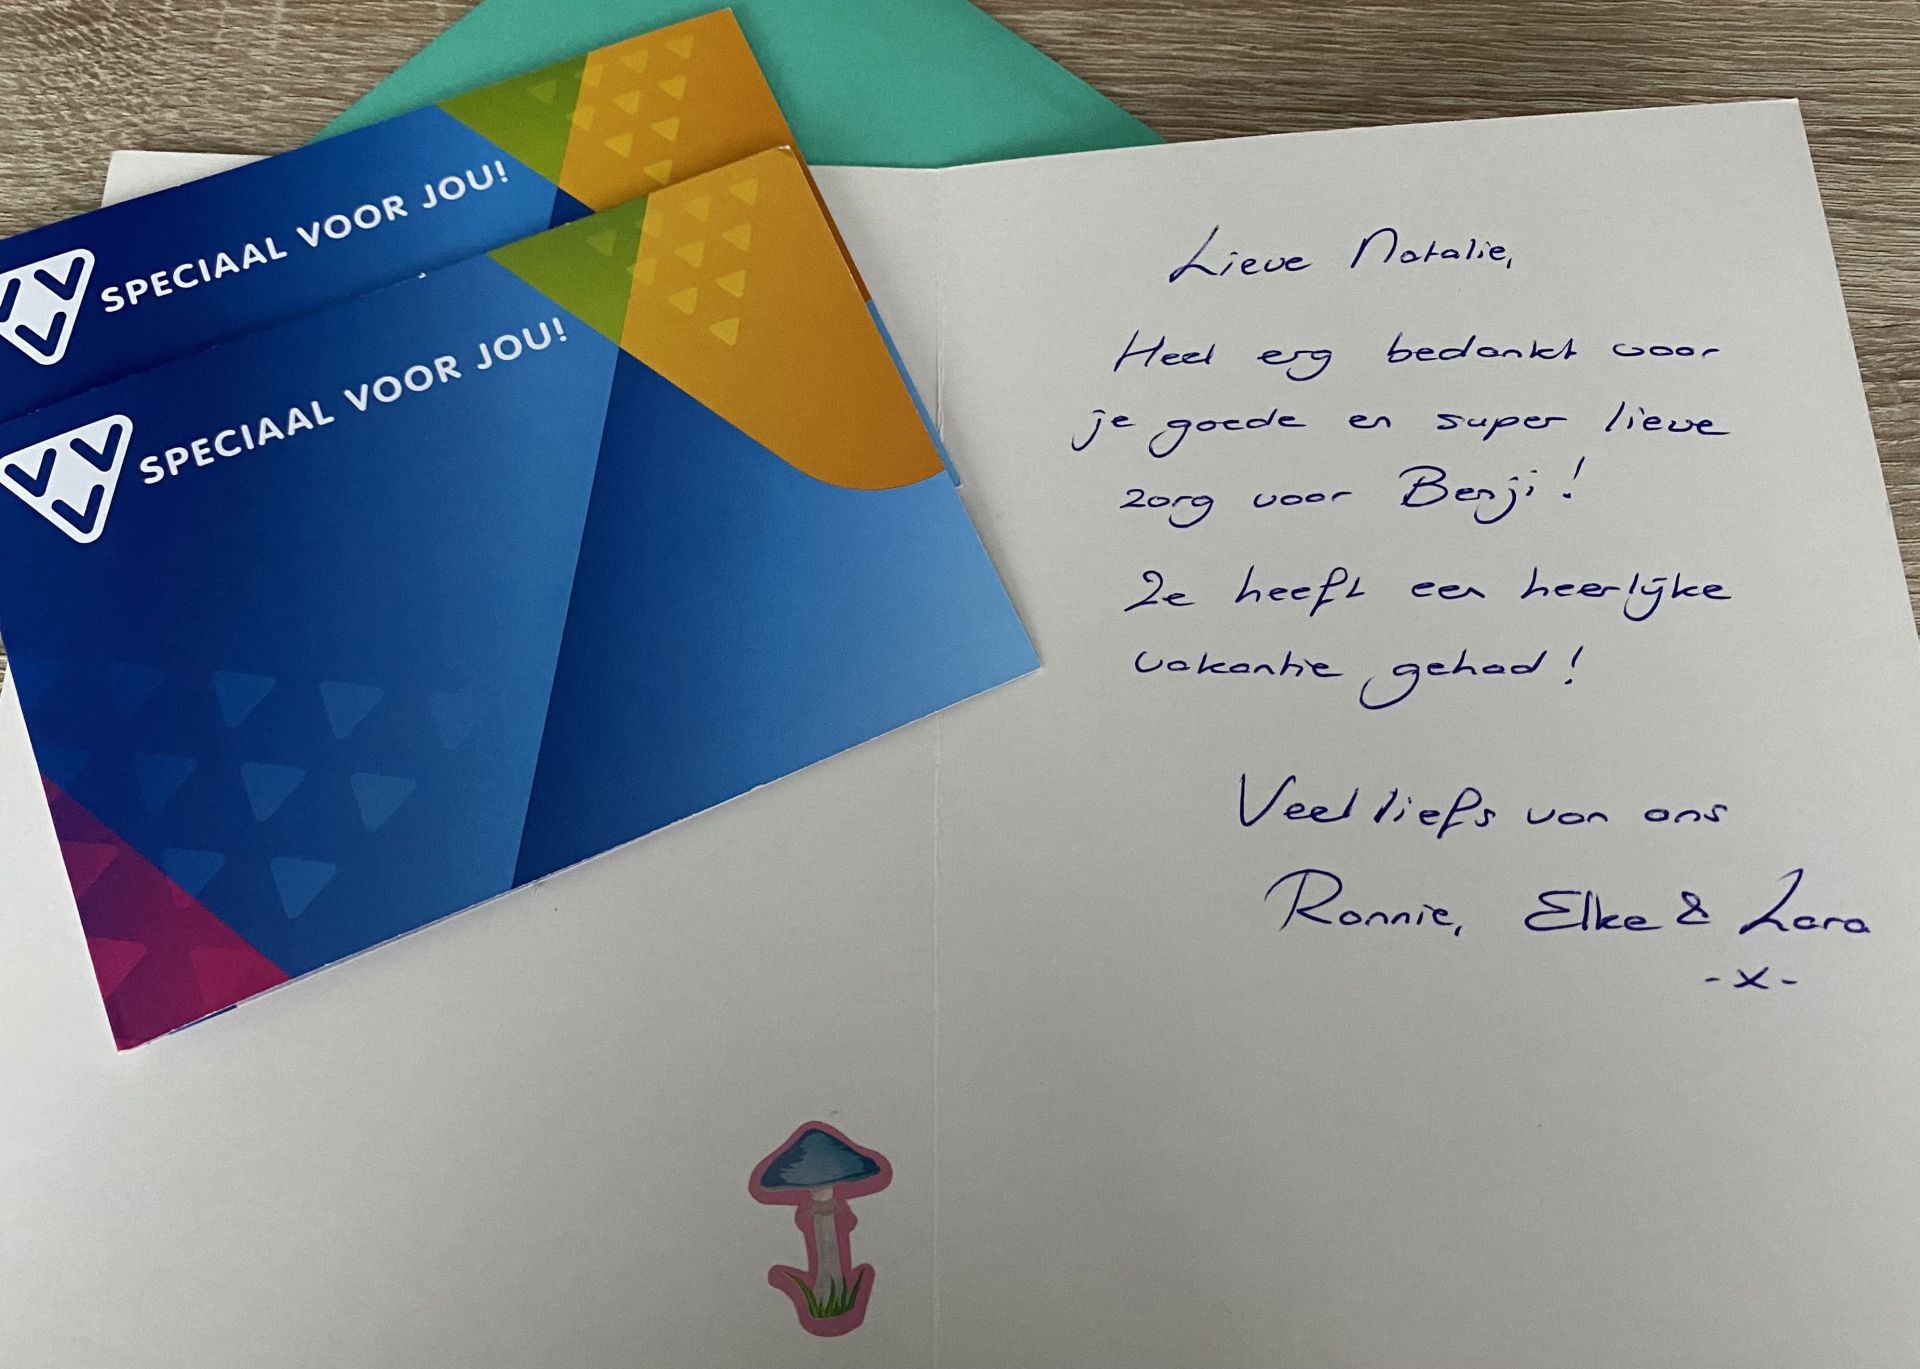 SPECIAAL VOOR JOU!
VVV
SPECIAAL VOOR JOU!
VVV
Lieve Natalie,
Heel erg bedankt voor
je goede en super lieve
zorg voor Benji!
Ze heeft een heerlijke
vakantie gehad!
Veel liefs van ons
Ronnie, Elke & Lara
-x-